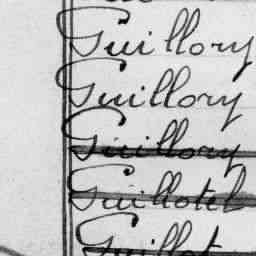 Guillory
Guillory
Guillory
Guillotel
Guillot